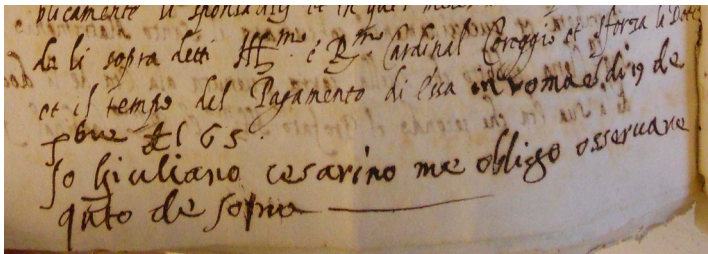 da li sopra detti Ill.mo e R.mo Cardinal Coreggio et sforza li Dote
et il tempo del Pagamento di essa in roma el di 19 de
xbre del 65.
Io Giuliano cesarino me obligo osservare
q̃nto de sopra